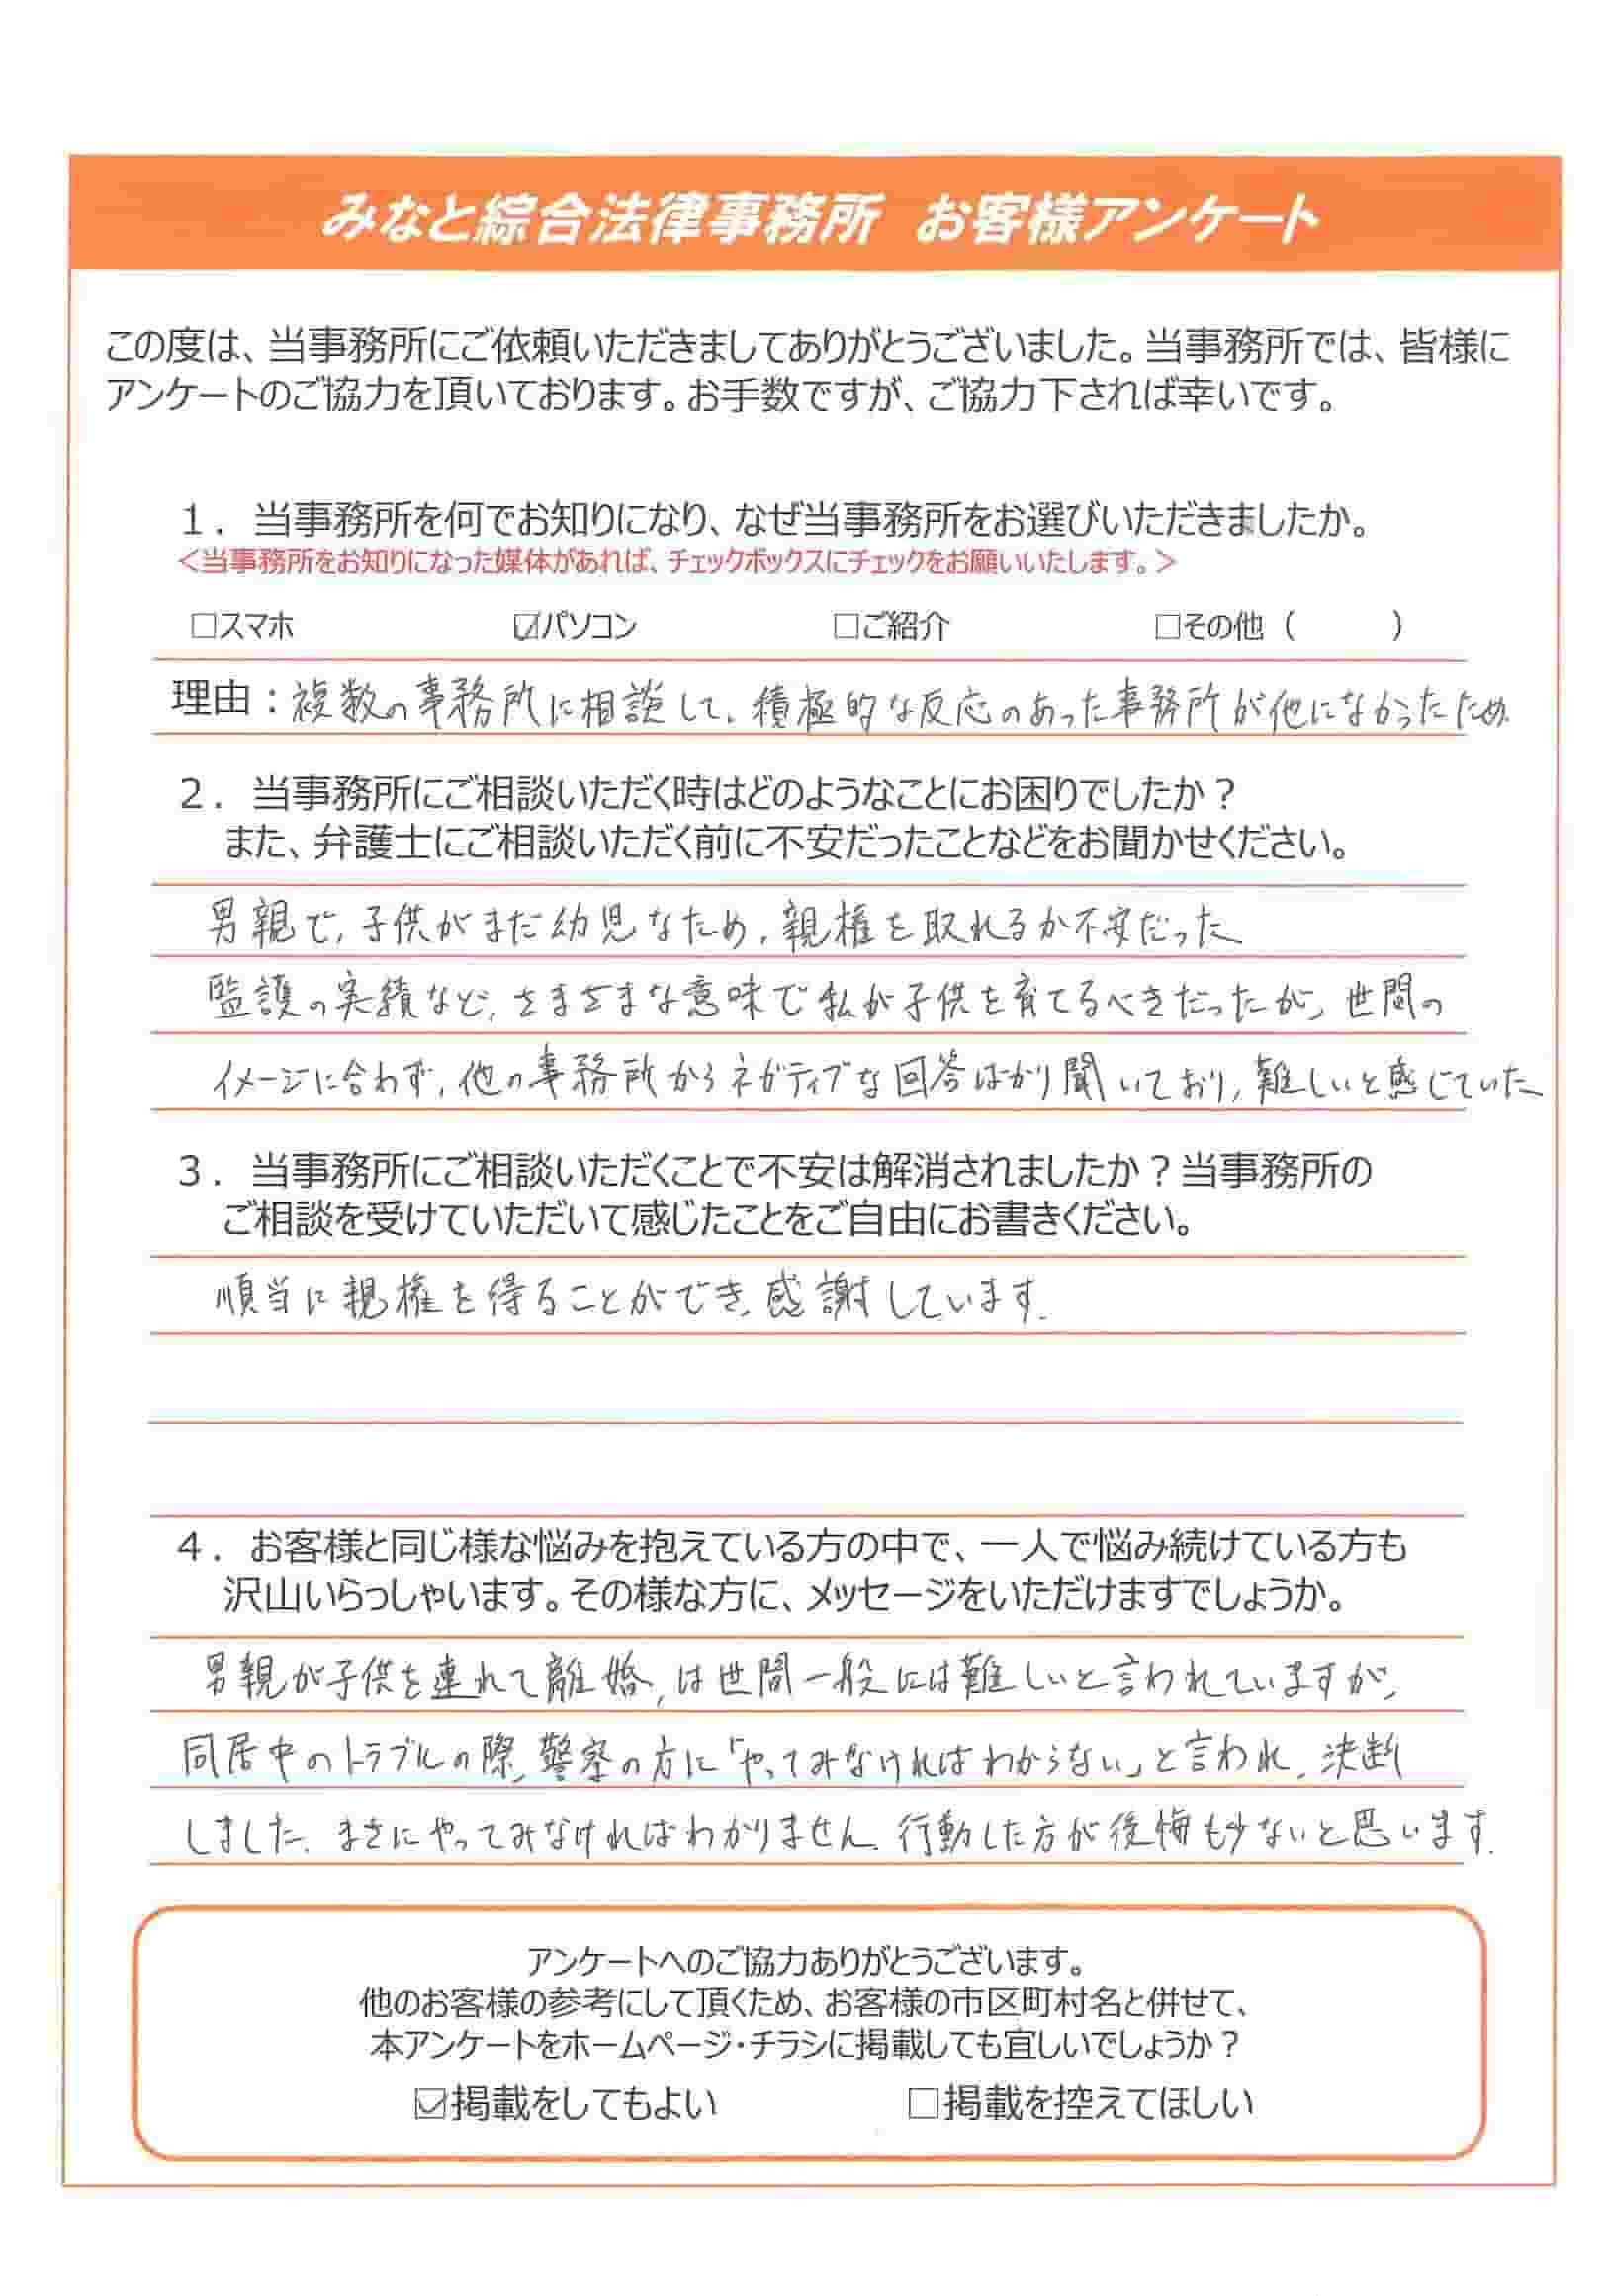 みなと綜合法律事務所 お客様アンケート
この度は、当事務所にご依頼いただきましてありがとうございました。当事務所では、皆様に
アンケートのご協力を頂いております。お手数ですが、ご協力下されば幸いです。
１．当事務所を何でお知りになり、なぜ当事務所をお選びいただきましたか。
＜当事務所をお知りになった媒体があれば、チェックボックスにチェックをお願いいたします。＞
□スマホ ☑パソコン □ご紹介 □その他（ ）
理由：複数の事務所に相談して、積極的な反応のあった事務所が他になかったため
２．当事務所にご相談いただく時はどのようなことにお困りでしたか？
また、弁護士にご相談いただく前に不安だったことなどをお聞かせください。
男親で、子供がまだ幼児なため、親権を取れるか不安だった
監護の実績など、さまざまな意味で私が子供を育てるべきだったが、世間の
イメージに合わず、他の事務所からネガティブな回答ばかり聞いており、難しいと感じていた
３．当事務所にご相談いただくことで不安は解消されましたか？当事務所の
ご相談を受けていただいて感じたことをご自由にお書きください。
順当に親権を得ることができ、感謝しています.
４．お客様と同じ様な悩みを抱えている方の中で、一人で悩み続けている方も
沢山いらっしゃいます。その様な方に、メッセージをいただけますでしょうか。
男親が子供を連れて離婚、は世間一般には難しいと言われていますが、
同居中のトラブルの際、警察の方に「やってみなければわからない」と言われ、決断
しました. まさにやってみなければわかりません. 行動した方が後悔も少ないと思います.
アンケートへのご協力ありがとうございます。
他のお客様の参考にして頂くため、お客様の市区町村名と併せて、
本アンケートをホームページ・チラシに掲載しても宜しいでしょうか？
☑掲載をしてもよい □掲載を控えてほしい